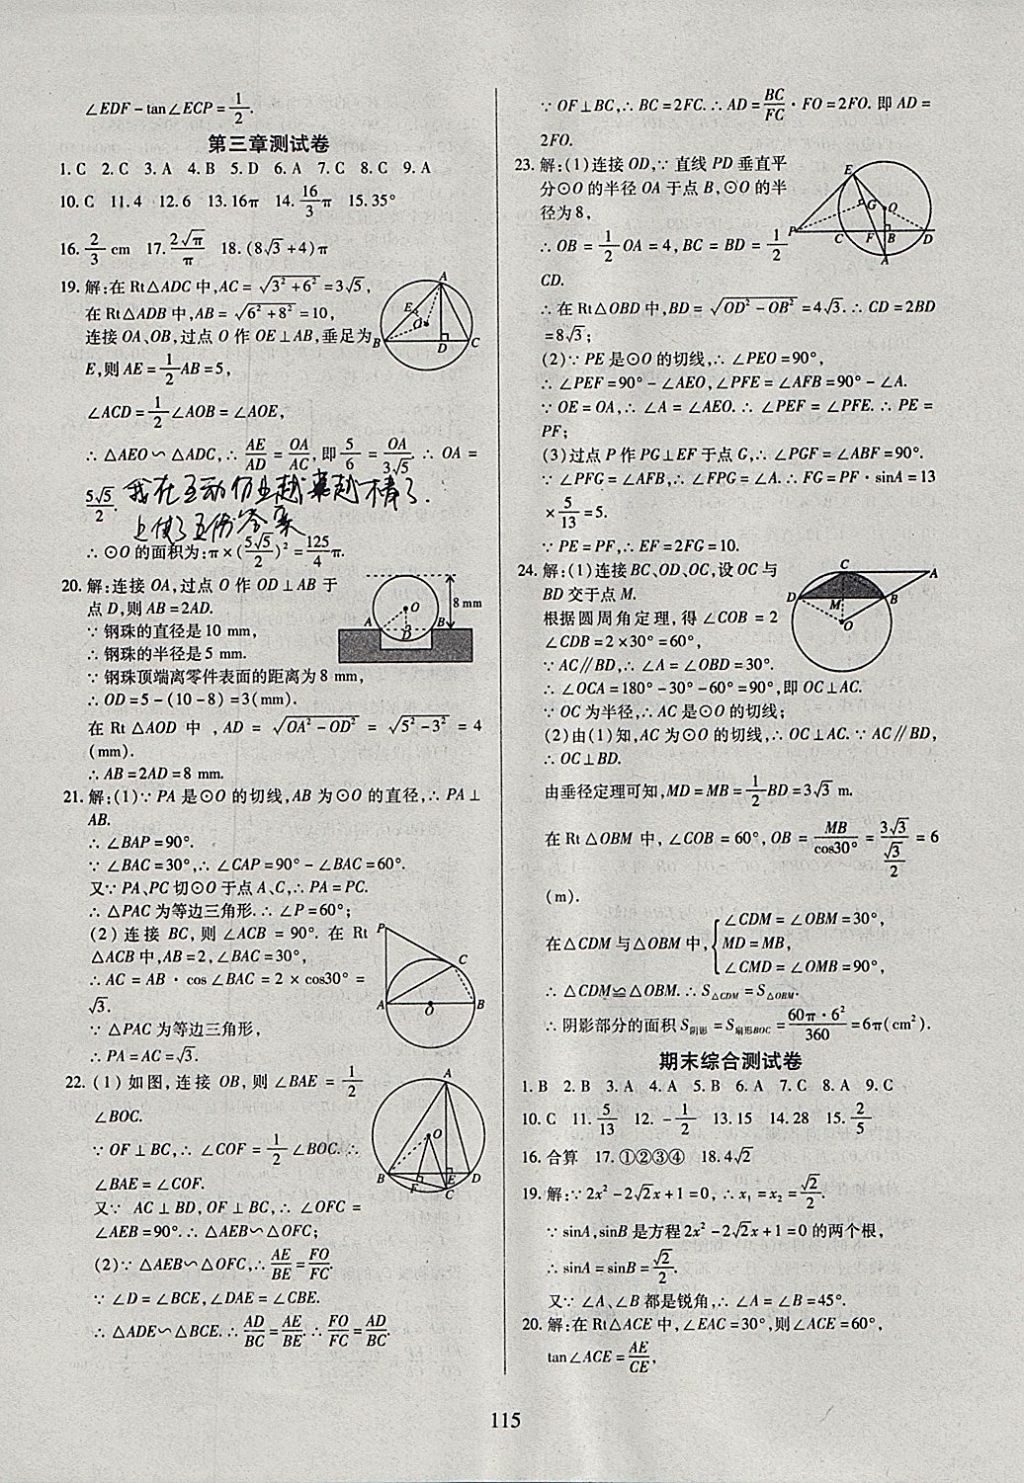 ∠EDF-tan∠ECP=1/2.
第三章测试卷
1.C 2.C 3.A 4.B 5.D 6.A 7.C 8.C 9.A
10.C 11.4 12.6 13.16π 14.16/3π 15.35°
16.2/3 cm 17.2√π/π 18.(8√3+4)π
19.解:在Rt△ADC中,AC=√(3²+6²)=3√5,
在Rt△ADB中,AB=√(6²+8²)=10,
连接OA、OB,过点O作OE⊥AB,垂足为
E,则AE=1/2AB=5,
∠ACD=1/2∠AOB=∠AOE,
∴△AEO∽△ADC,∴AE/AD=OA/AC,即5/6=OA/3√5.∴OA=
5√5/2. 我在互动作业
∴⊙O的面积为:π×(5√5/2)²=125/4π.
20.解:连接OA,过点O作OD⊥AB于
点D,则AB=2AD.
∵钢珠的直径是10 mm,
∴钢珠的半径是5 mm.
∵钢珠顶端离零件表面的距离为8 mm,
∴OD=5-(10-8)=3(mm).
在Rt△AOD中,AD=√(OA²-OD²)=√(5²-3²)=4
(mm).
∴AB=2AD=8 mm.
21.解:(1)∵PA是⊙O的切线,AB为⊙O的直径,∴PA⊥
AB.
∴∠BAP=90°.
∵∠BAC=30°,∴∠CAP=90°-∠BAC=60°.
又∵PA、PC切⊙O于点A、C,∴PA=PC.
∴△PAC为等边三角形.∴∠P=60°;
(2)连接BC,则∠ACB=90°.在Rt
△ACB中,AB=2,∠BAC=30°,
∴AC=AB·cos∠BAC=2×cos30°=
√3.
∵△PAC为等边三角形,
∴PA=AC=√3.
22.(1)如图,连接OB,则∠BAE=1/2
∠BOC.
∵OF⊥BC,∴∠COF=1/2∠BOC.∴
∠BAE=∠COF.
又∵AC⊥BD,OF⊥BC,∴∠OFC=
∠AEB=90°.∴△AEB∽△OFC;
(2)∵△AEB∽△OFC,∴AE/BE=FO/FC.
∵∠D=∠BCE,∠DAE=∠CBE.
∴△ADE∽△BCE.∴AD/BC=AE/BE.∴FO/FC=AD/BC.
∵OF⊥BC,∴BC=2FC.∴AD=BC/FC·FO=2FO.即AD=
2FO.
23.解:(1)连接OD,∵直线PD垂直平
分⊙O的半径OA于点B,⊙O的半
径为8,
∴OB=1/2OA=4,BC=BD=1/2
CD.
∴在Rt△OBD中,BD=√(OD²-OB²)=4√3.∴CD=2BD
=8√3;
(2)∵PE是⊙O的切线,∴∠PEO=90°,
∴∠PEF=90°-∠AEO,∠PFE=∠AFB=90°-∠A.
∵OE=OA,∴∠A=∠AEO.∴∠PEF=∠PFE.∴PE=
PF;
(3)过点P作PG⊥EF于点G,∴∠PGF=∠ABF=90°.
∵∠PFG=∠AFB,∴∠FPG=∠A.∴FG=PF·sinA=13
×5/13=5.
∵PE=PF,∴EF=2FG=10.
24.解:(1)连接BC、OD、OC,设OC与
BD交于点M.
根据圆周角定理,得∠COB=2
∠CDB=2×30°=60°,
∵AC∥BD,∴∠A=∠OBD=30°.
∴∠OCA=180°-30°-60°=90°,即OC⊥AC.
∵OC为半径,∴AC是⊙O的切线;
(2)由(1)知,AC为⊙O的切线,∴OC⊥AC.∵AC∥BD,
∴OC⊥BD.
由垂径定理可知,MD=MB=1/2BD=3√3 m.
在Rt△OBM中,∠COB=60°,OB=MB/cos30°=3√3/(√3/2)=6
(m).
在△CDM与△OBM中,{∠CDM=∠OBM=30°,
MD=MB,
∠CMD=∠OMB=90°,
∴△CDM≌△OBM.∴S△CDM=S△OBM.
∴阴影部分的面积S阴影=S扇形BOC=60π·6²/360=6π(cm²).
期末综合测试卷
1.B 2.B 3.A 4.A 5.B 6.A 7.C 8.A 9.C
10.C 11.5/13 12.-1/2 13.15 14.28 15.2/5
16.合算 17.①②③④ 18.4√2
19.解:∵2x²-2√2x+1=0,∴x₁=x₂=√2/2.
∵sinA,sinB是方程2x²-2√2x+1=0的两个根,
∴sinA=sinB=√2/2.
又∵∠A、∠B都是锐角,∴∠A=∠B=45°.
20.解:在Rt△ACE中,∠EAC=30°,则∠ACE=60°,
tan∠ACE=AE/CE,
115